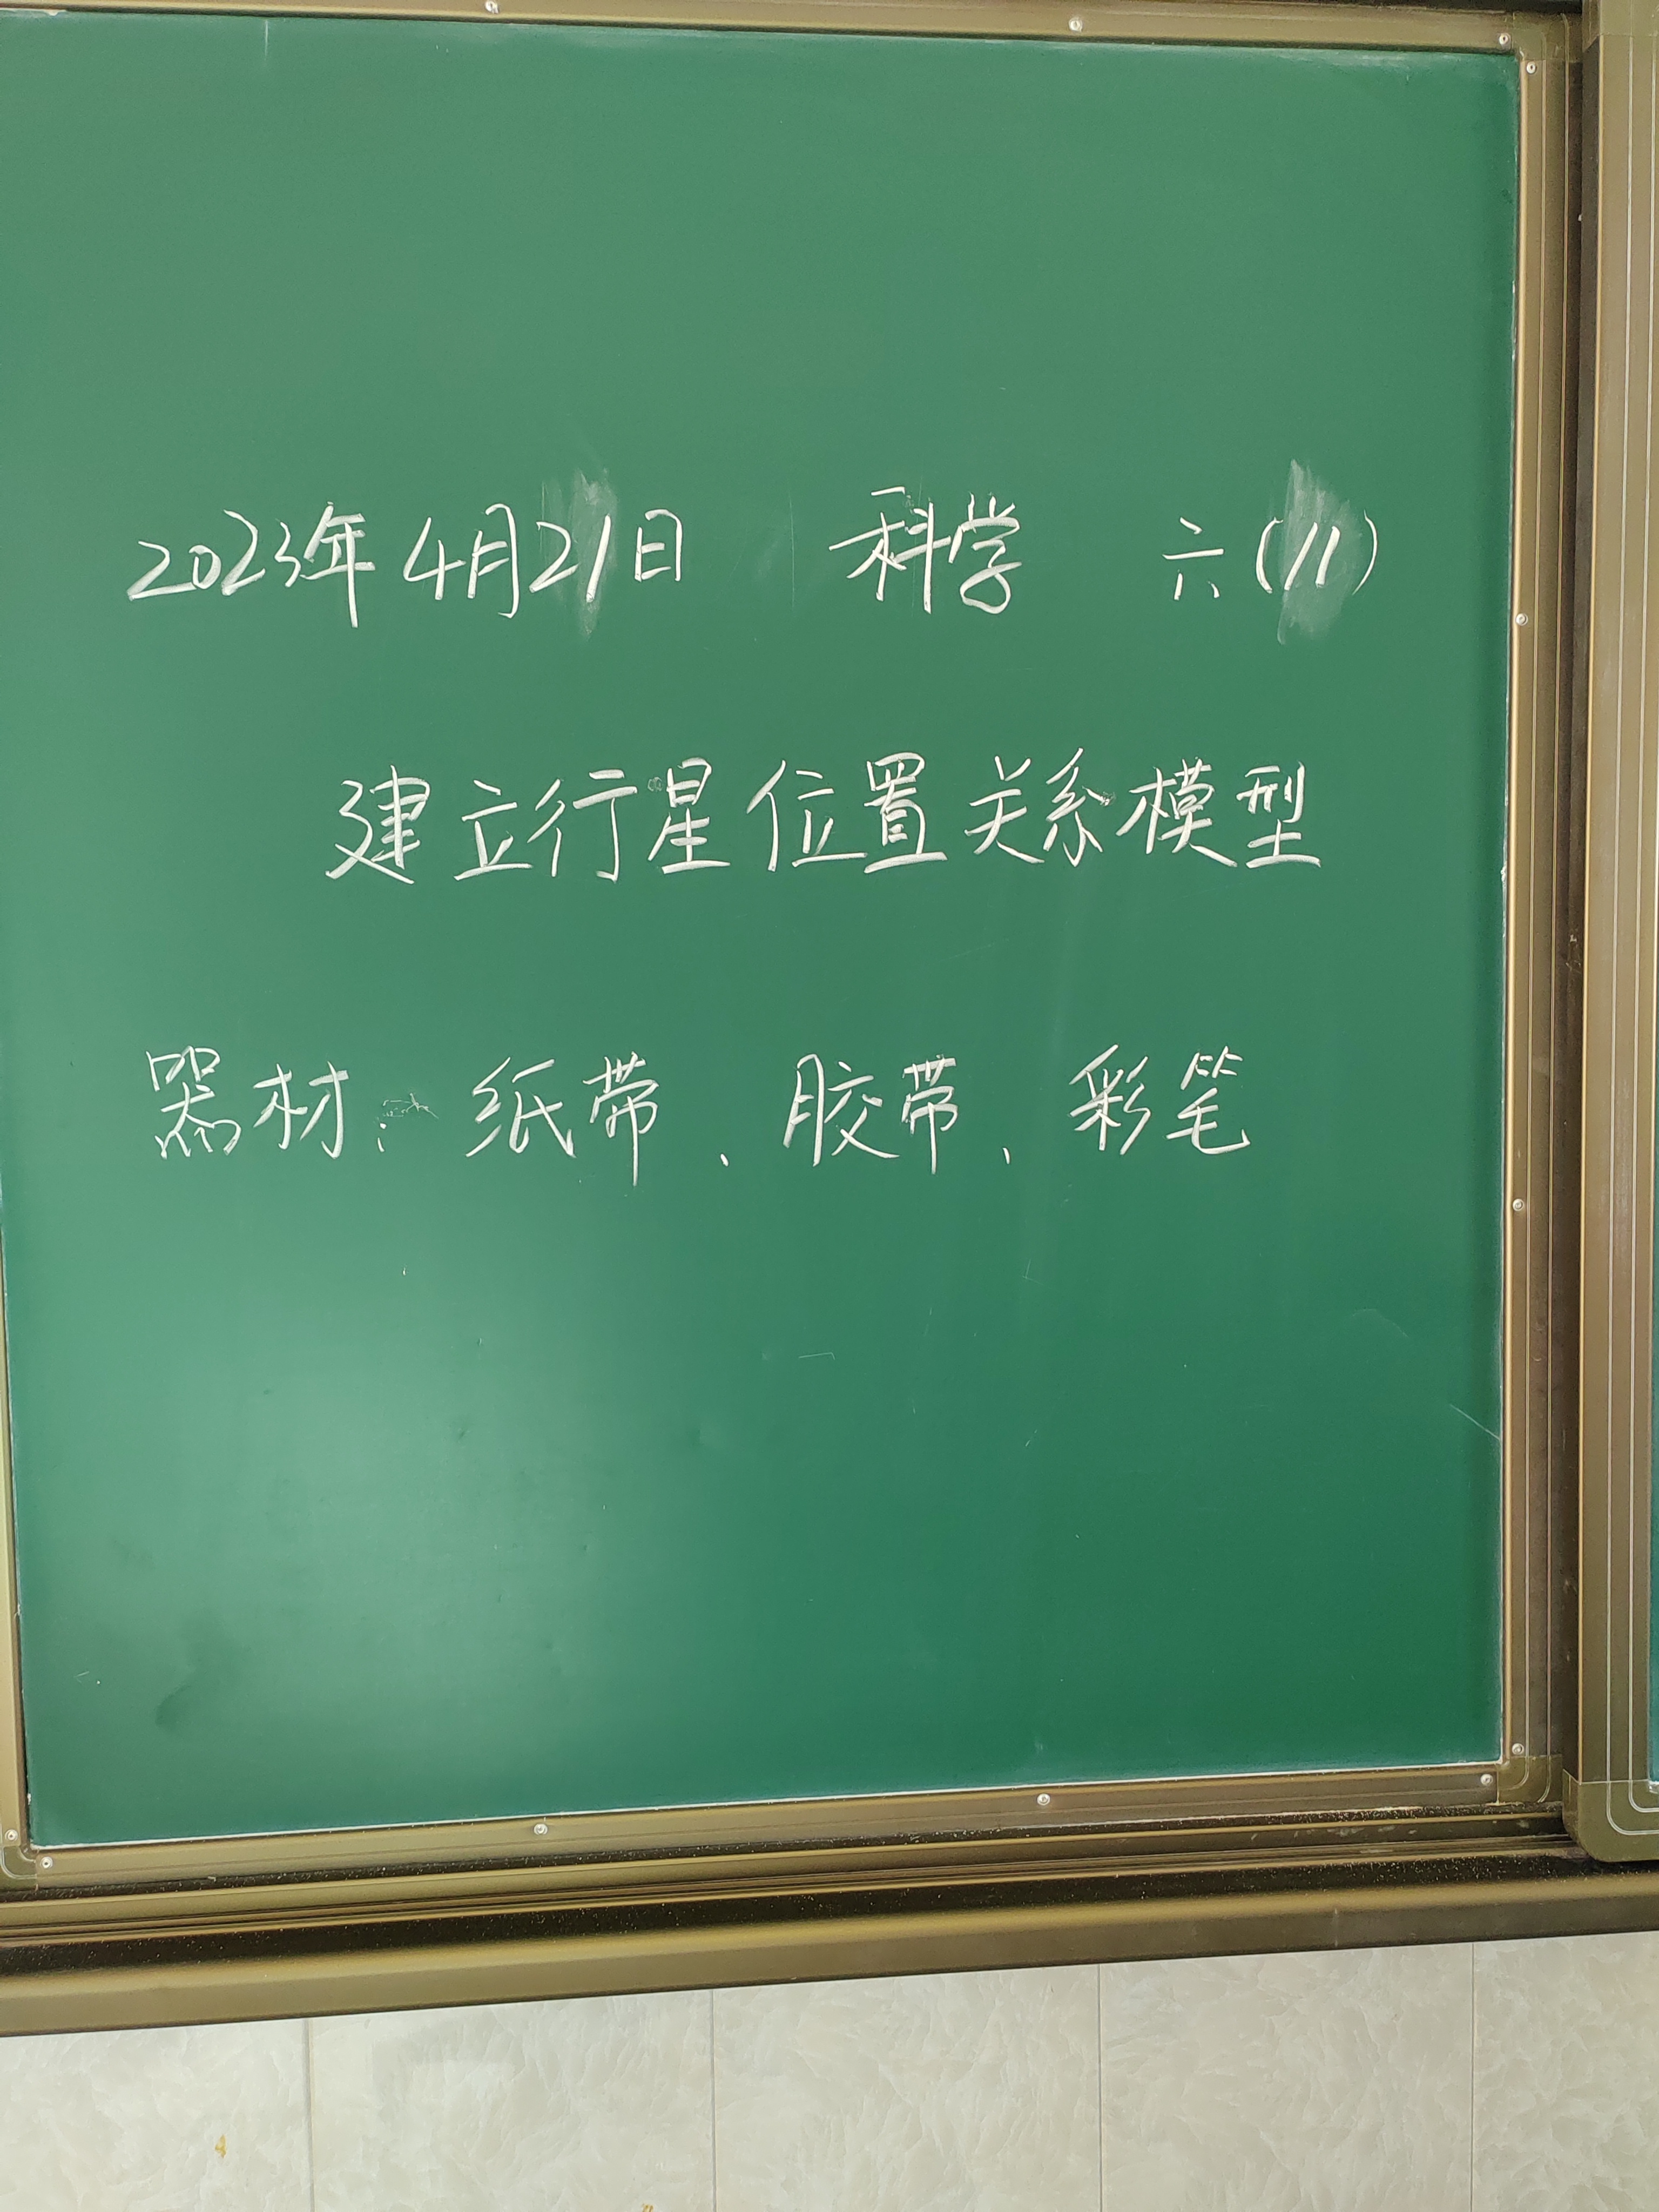 2023年4月21日 科学 六(11)
建立行星位置关系模型
器材：纸带、胶带、彩笔